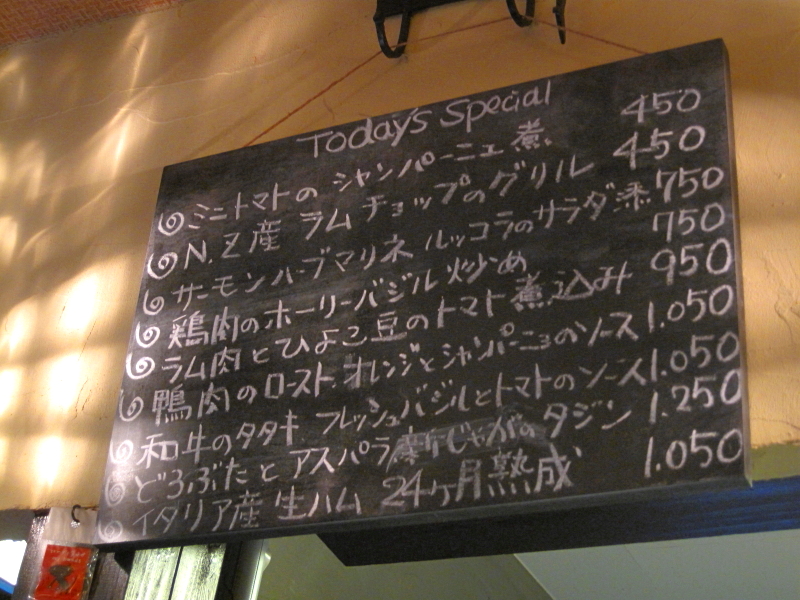 Today's Special
ミニトマトの シャンパーニュ煮 450
N.Z産 ラムチョップのグリル 450
サーモンハーブマリネ ルッコラのサラダ添 750
鶏肉のホーリーバジル炒め 750
ラム肉とひよこ豆のトマト煮込み 950
鴨肉のロースト オレンジとシャンパーニュのソース 1.050
和牛のタタキ フレッシュバジルとトマトのソース 1.050
どろぶたとアスパラ じゃがのタジン 1.250
イタリア産 生ハム 24ヶ月熟成 1.050